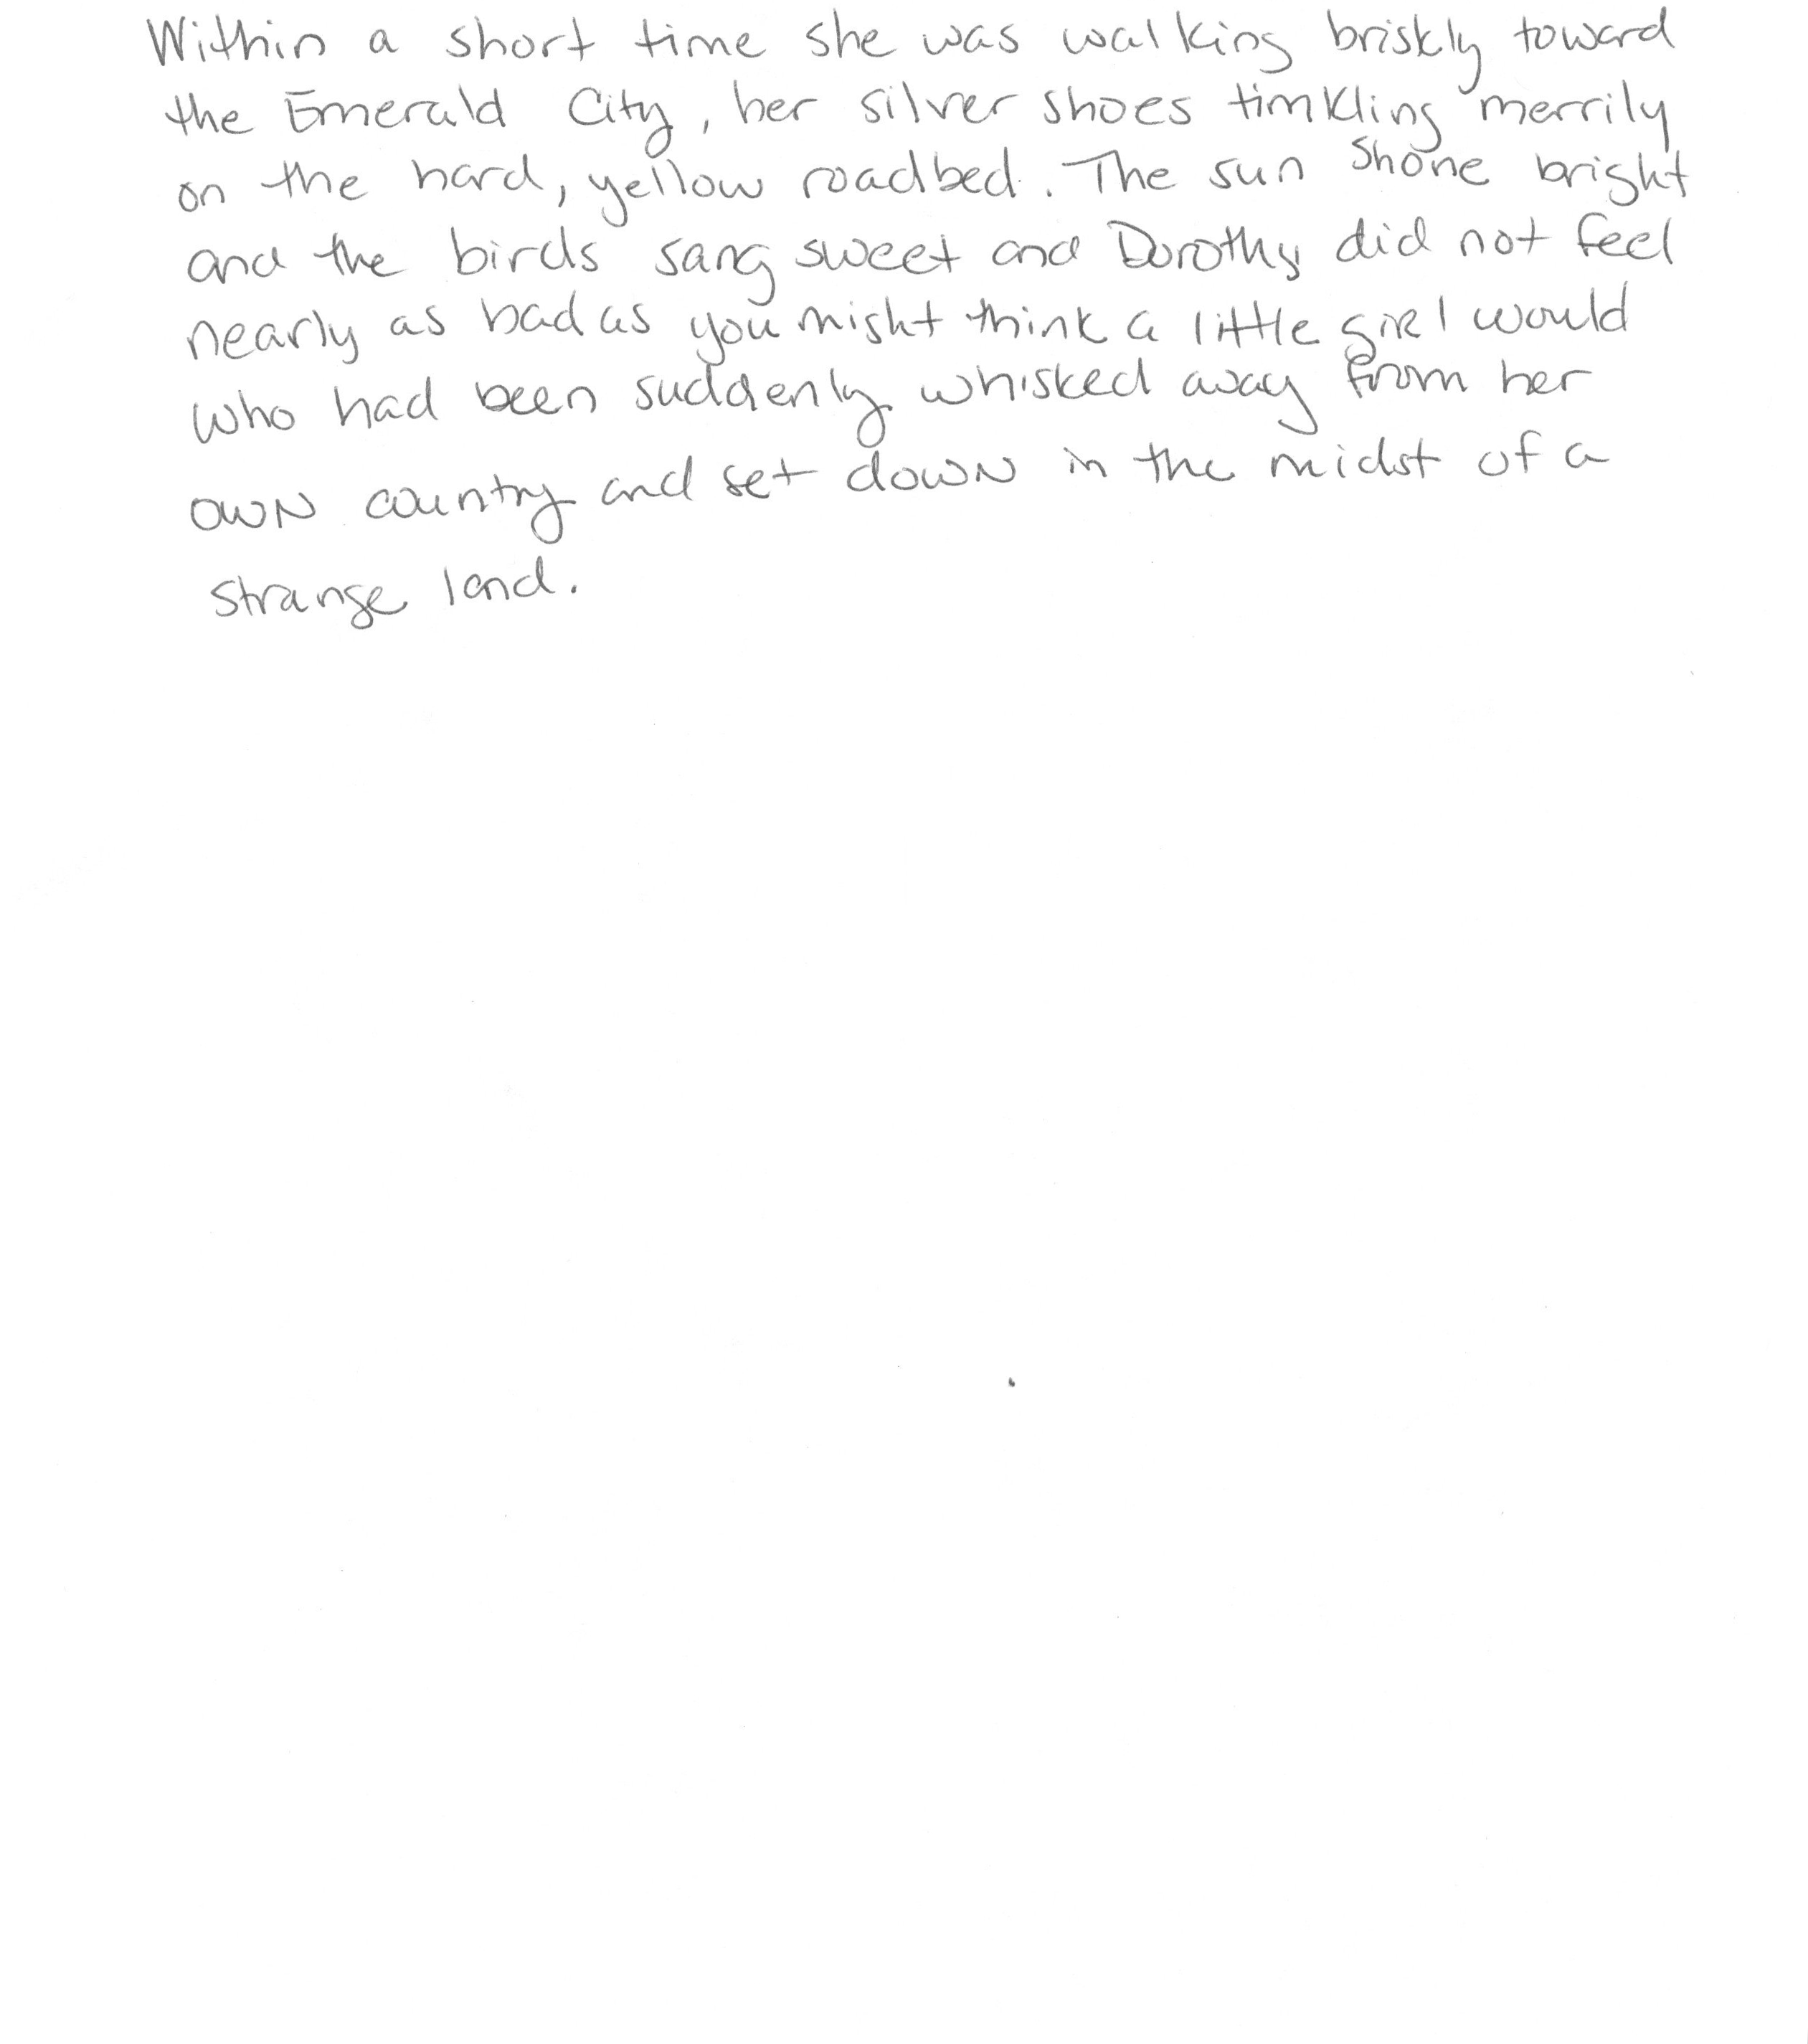 Within a short time she was walking briskly toward
the Emerald City, her silver shoes timkling merrily
on the hard, yellow roadbed. The sun shone bright
and the birds sang sweet and Dorothy did not feel
nearly as bad as you might think a little girl would
who had been suddenly whisked away from her
own country and set down in the midst of a
strange land.